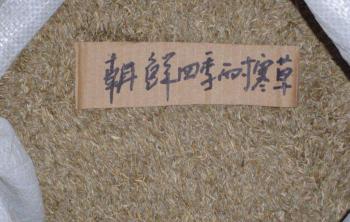 朝鲜四季耐寒草